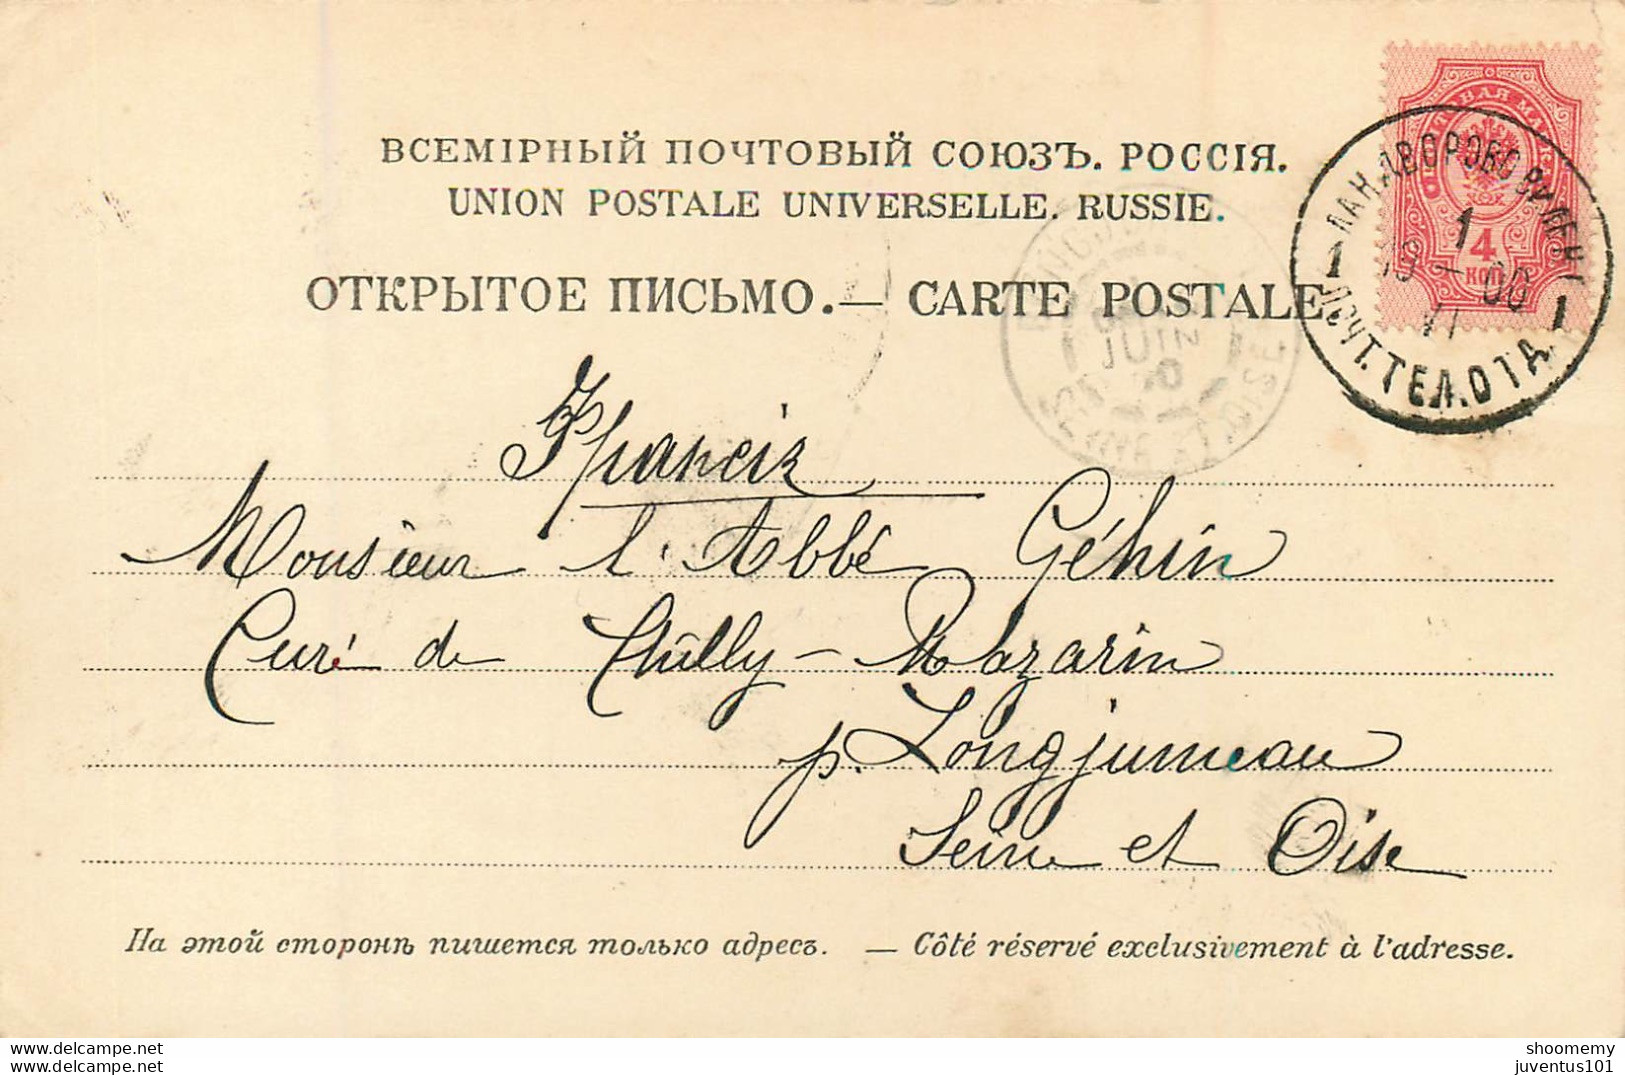 ВСЕМІРНЫЙ ПОЧТОВЫЙ СОЮЗЪ. РОССІЯ.
UNION POSTALE UNIVERSELLE. RUSSIE.
ОТКРЫТОЕ ПИСЬМО.— CARTE POSTALE.
4
КОП
1
19 — 00
VI
1 1
ПОЧТ. ТЕЛ. ОТД.
JUIN
SEINE ET OISE
Monsieur l'Abbé Géhin
Curé de Chilly-Mazarin
p. Longjumeau
Seine et Oise
На этой сторонѣ пишется только адресъ. — Côté réservé exclusivement à l'adresse.
www.delcampe.net
shoomemy
juventus101